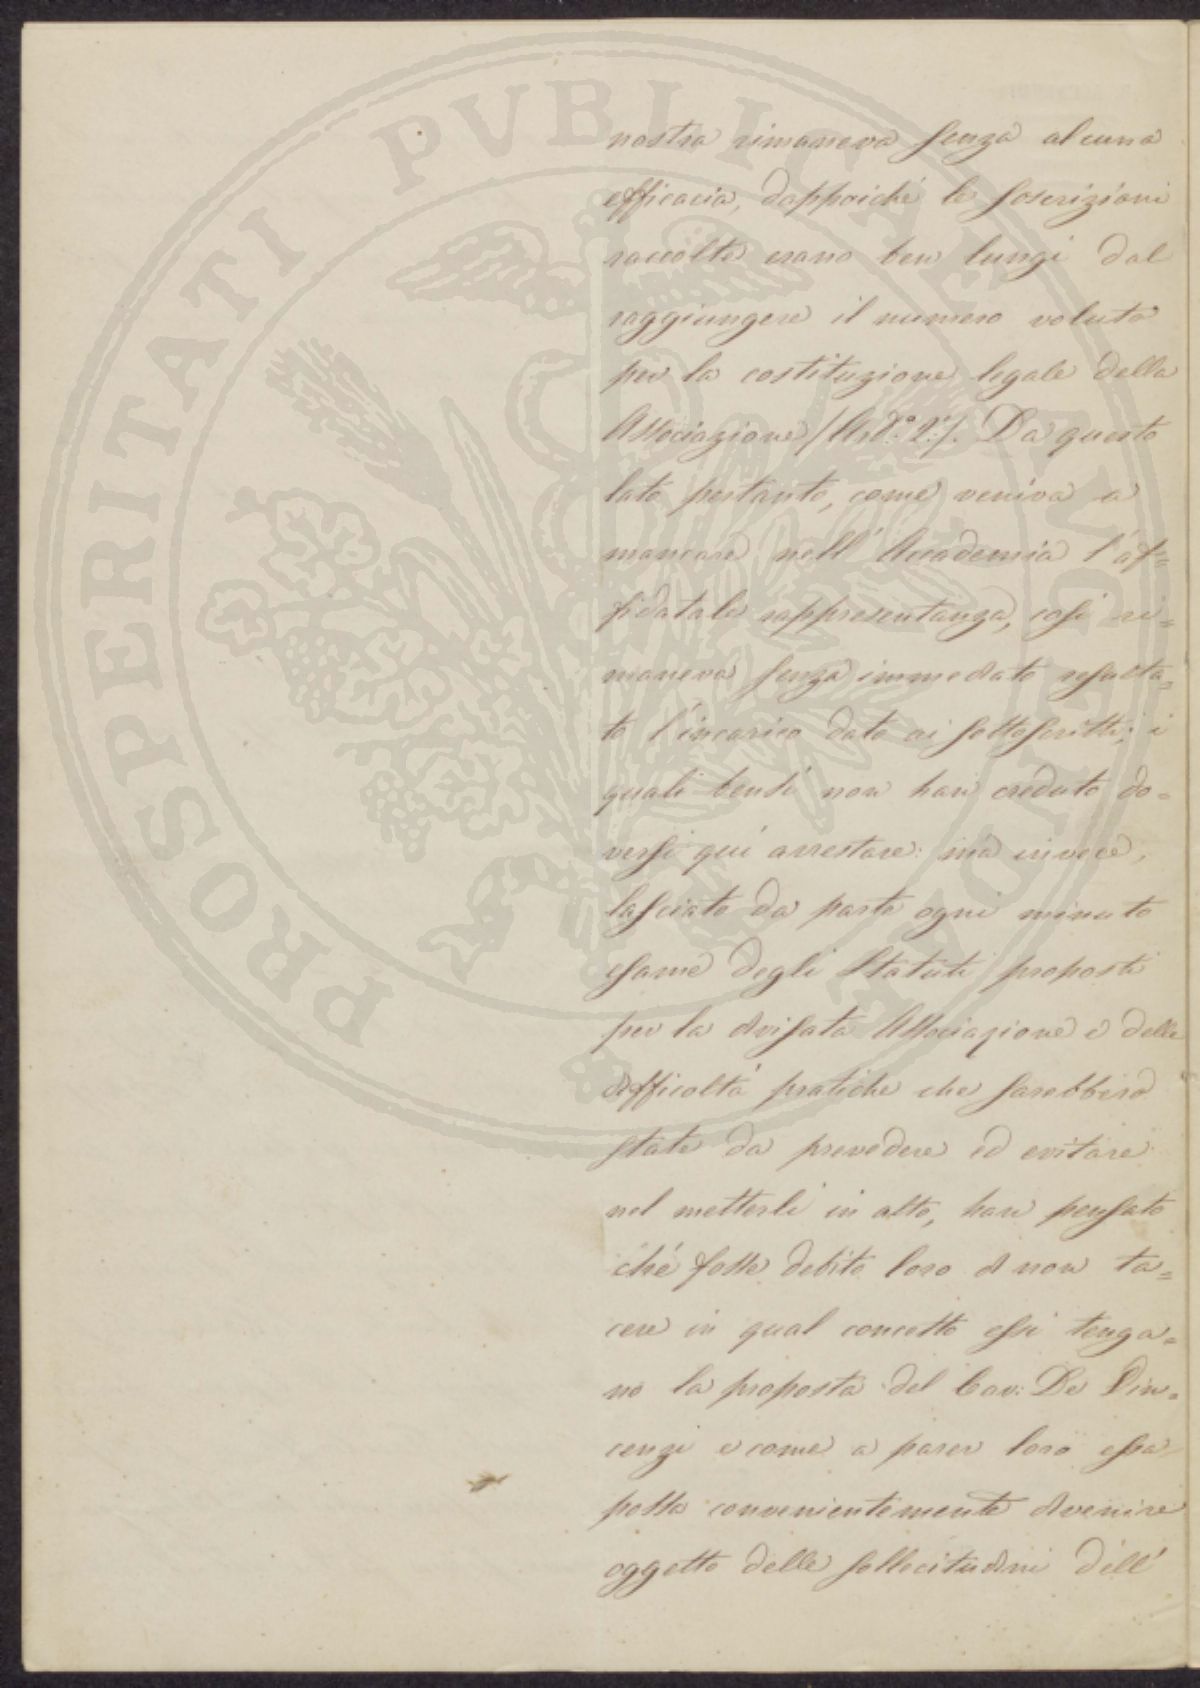 nostra rimaneva senza alcuna
efficacia, dappoiché le soscrizioni
raccolte erano ben lungi dal
raggiungere il numero voluto
per la costituzione legale della
Associazione /Art.° 2.°/. Da questo
lato pertanto, come veniva a
mancare nell' Accademia l'af=
fidatale rappresentanza, così ri=
maneva senza immediato resulta=
to l'incarico dato ai sottoscritti; i
quali bensì non han creduto do=
versi quì arrestare: mà invece,
lasciato da parte ogni minuto
esame degli Statuti proposti
per la divisata Associazione e delle
difficoltà pratiche che sarebbero
state da prevedere ed evitare
nel metterli in atto, han pensato
ché fosse debito loro di non ta=
cere in qual concetto essi tenga=
no la proposta del Cav: De Vin=
cenzi e come a parer loro essa
possa convenientemente divenire
oggetto delle sollecitudini dell'
PROSPERITATI PVBLICAE AVGENDAE